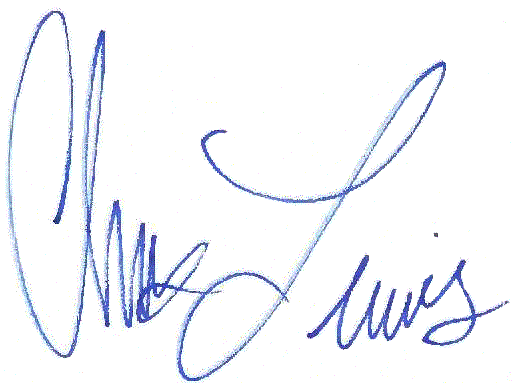 Chris Lewis